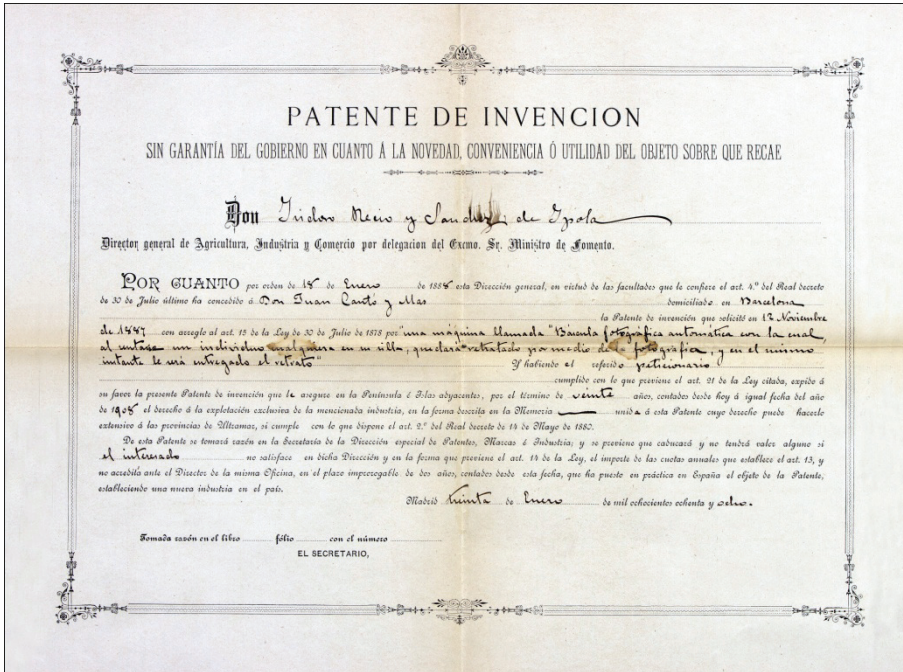 PATENTE DE INVENCION
SIN GARANTÍA DEL GOBIERNO EN CUANTO Á LA NOVEDAD, CONVENIENCIA Ó UTILIDAD DEL OBJETO SOBRE QUE RECAE
Don Isidoro Recio y Sanchez de Ipola
Director general de Agricultura, Industria y Comercio por delegacion del Excmo. Sr. Ministro de Fomento.
POR CUANTO por orden de 18 de Enero de 1888 esta Dirección general, en virtud de las facultades que le confiere el art. 4.º del Real decreto
de 30 de Julio último ha concedido á Don Juan Cantó y Mas domiciliado en Barcelona
la Patente de invención que solicitó en 12 Noviembre
de 1887 con arreglo al art. 15 de la Ley de 30 de Julio de 1878 por "una máquina llamada "Báscula fotográfica automática con la cual,
al sentarse un individuo cualquiera en su silla, quedará retratado por medio de la fotografia, y en el mismo
instante le será entregado el retrato" Y habiendo el referido peticionario
cumplido con lo que previene el art. 21 de la Ley citada, expido á
su favor la presente Patente de invención que le asegure en la Península é Islas adyacentes, por el término de veinte años, contados desde hoy á igual fecha del año
de 1908 el derecho á la explotación exclusiva de la mencionada industria, en la forma descrita en la Memoria unida á esta Patente cuyo derecho puede hacerlo
extensivo á las provincias de Ultramar, si cumple con lo que dispone el art. 2.º del Real decreto de 14 de Mayo de 1880.
De esta Patente se tomará razón en la Secretaria de la Dirección especial de Patentes, Marcas é Industria; y se previene que caducará y no tendrá valor alguno si
el interesado no satisface en dicha Dirección y en la forma que previene el art. 14 de la Ley, el importe de las cuotas anuales que establece el art. 13, y
no acredita ante el Director de la misma Oficina, en el plazo improrrogable de dos años, contados desde esta fecha, que ha puesto en práctica en España el objeto de la Patente,
estableciendo una nueva industria en el país.
Madrid treinta de Enero de mil ochocientos ochenta y ocho.
Tomada razón en el libro fólio con el número
EL SECRETARIO,